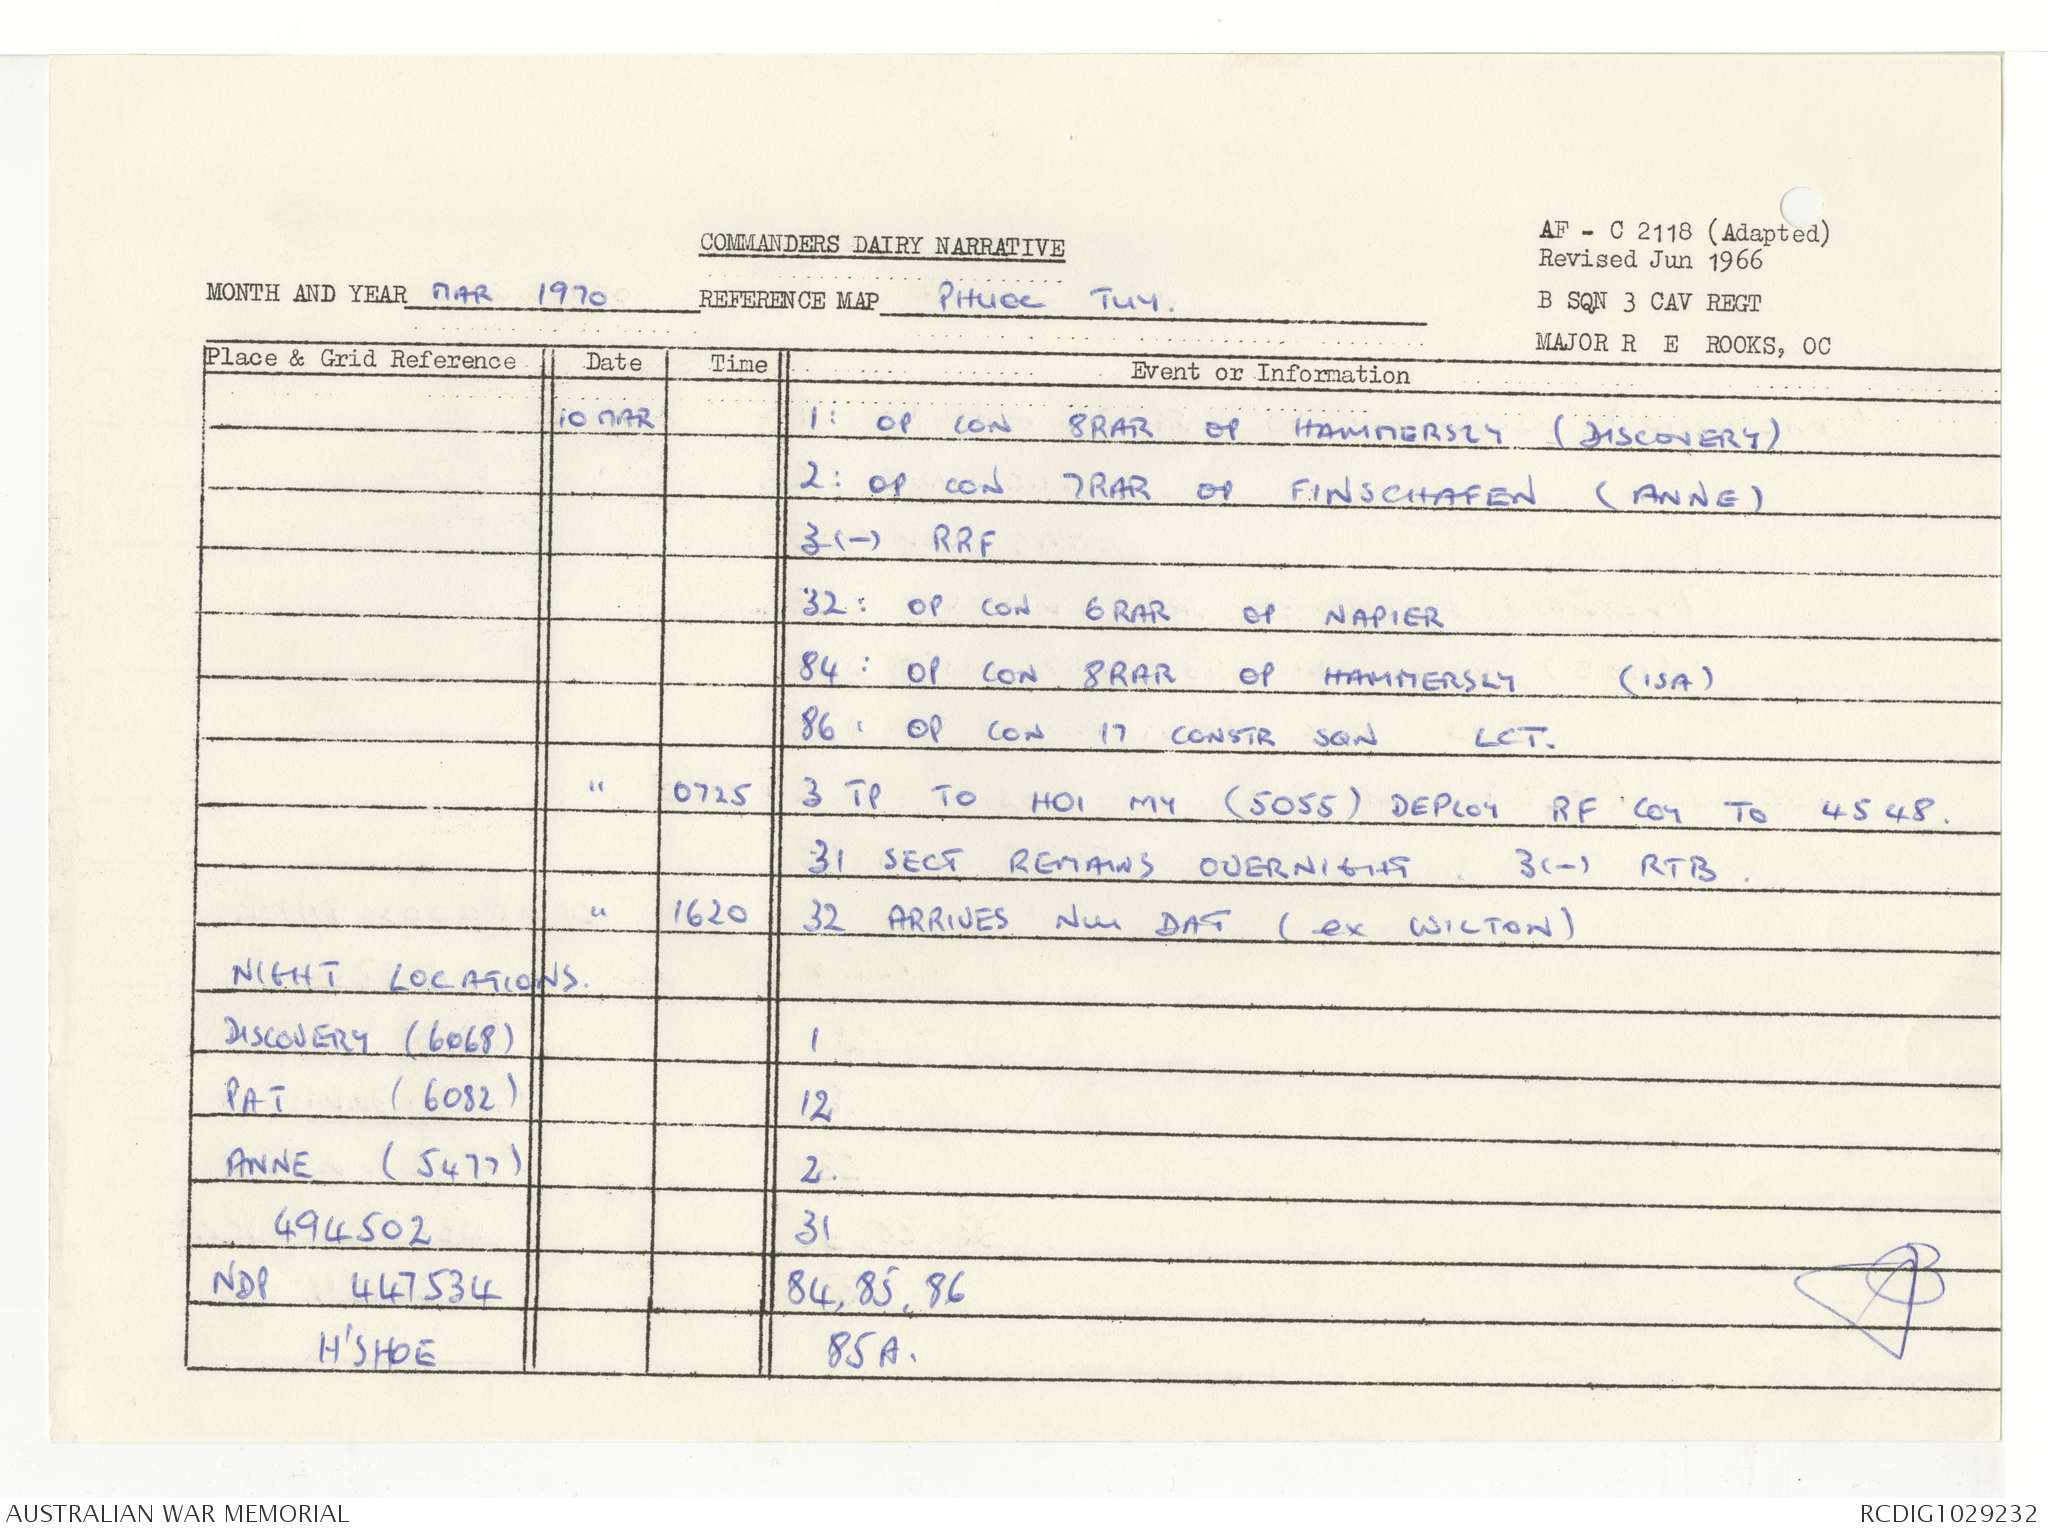 AF - C 2118 (Adapted)
COMMANDERS DAIRY NARRATIVE
Revised Jun 1966
MONTH AND YEAR MAR 1970 REFERENCE MAP PHUOC TUY.
B SQN 3 CAV REGT
MAJOR R E ROOKS, OC
Place & Grid Reference Date Time Event or Information
10 MAR 1: OP CON 8RAR OP HAMMERSLY (DISCOVERY)
2: OP CON 7RAR OP FINSCHAFEN (ANNE)
3(-) RRF
32: OP CON 6RAR OP NAPIER
84: OP CON 8RAR OP HAMMERSLY (ISA)
86: OP CON 17 CONSTR SQN LCT.
" 0725 3 TP TO HOI MY (5055) DEPLOY RF COY TO 4548.
31 SECT REMAINS OVERNIGHT. 3(-) RTB.
" 1620 32 ARRIVES NUI DAT (ex WILTON)
NIGHT LOCATIONS.
DISCOVERY (6068) 1
PAT (6082) 12
ANNE (5477) 2.
494502 31
NDP 447534 84, 85, 86
H'SHOE 85A.
AUSTRALIAN WAR MEMORIAL RCDIG1029232